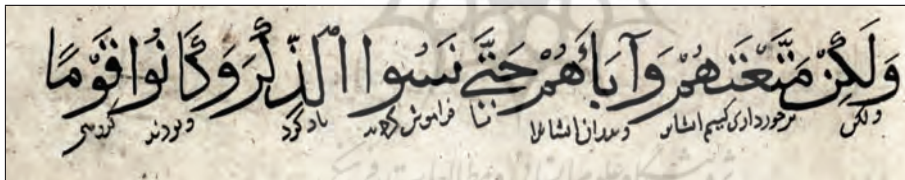 وَلَكِنْ مَتَّعْتَهُمْ وَآبَاءَهُمْ حَتَّى نَسُوا الذِّكْرَ وَكَانُوا قَوْمًا
ولکن برخورداری کنیم ایشان و پدران ایشانرا تا فراموش کردند یاد کرد و بودند گروهی